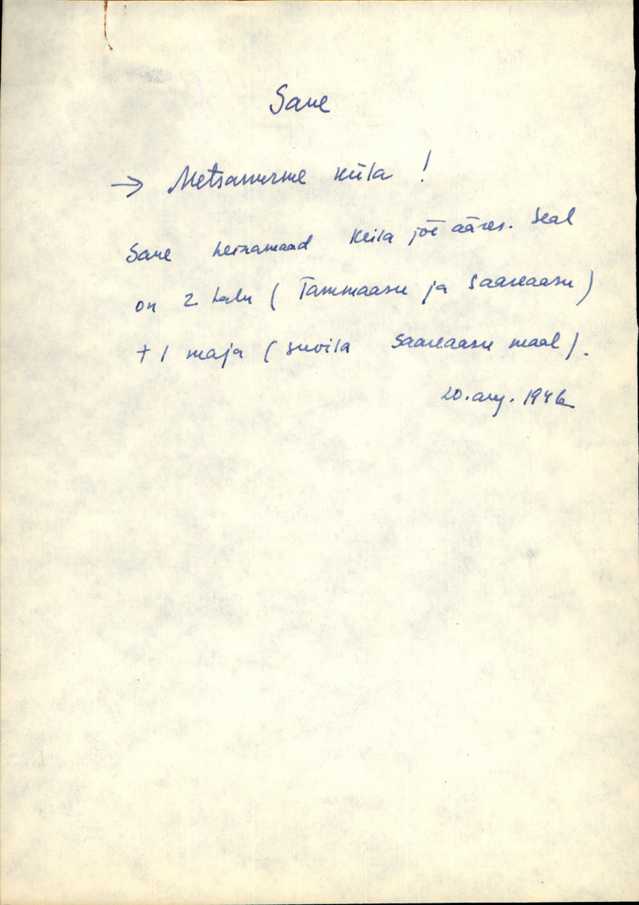 Saue
→ Metsanurme küla !
Saue heinamaad Keila jõe ääres. Seal
on 2 talu ( Tammaasu ja Saareaasu )
+ 1 maja ( suvila Saareaasu maal ).
20. aug. 1946